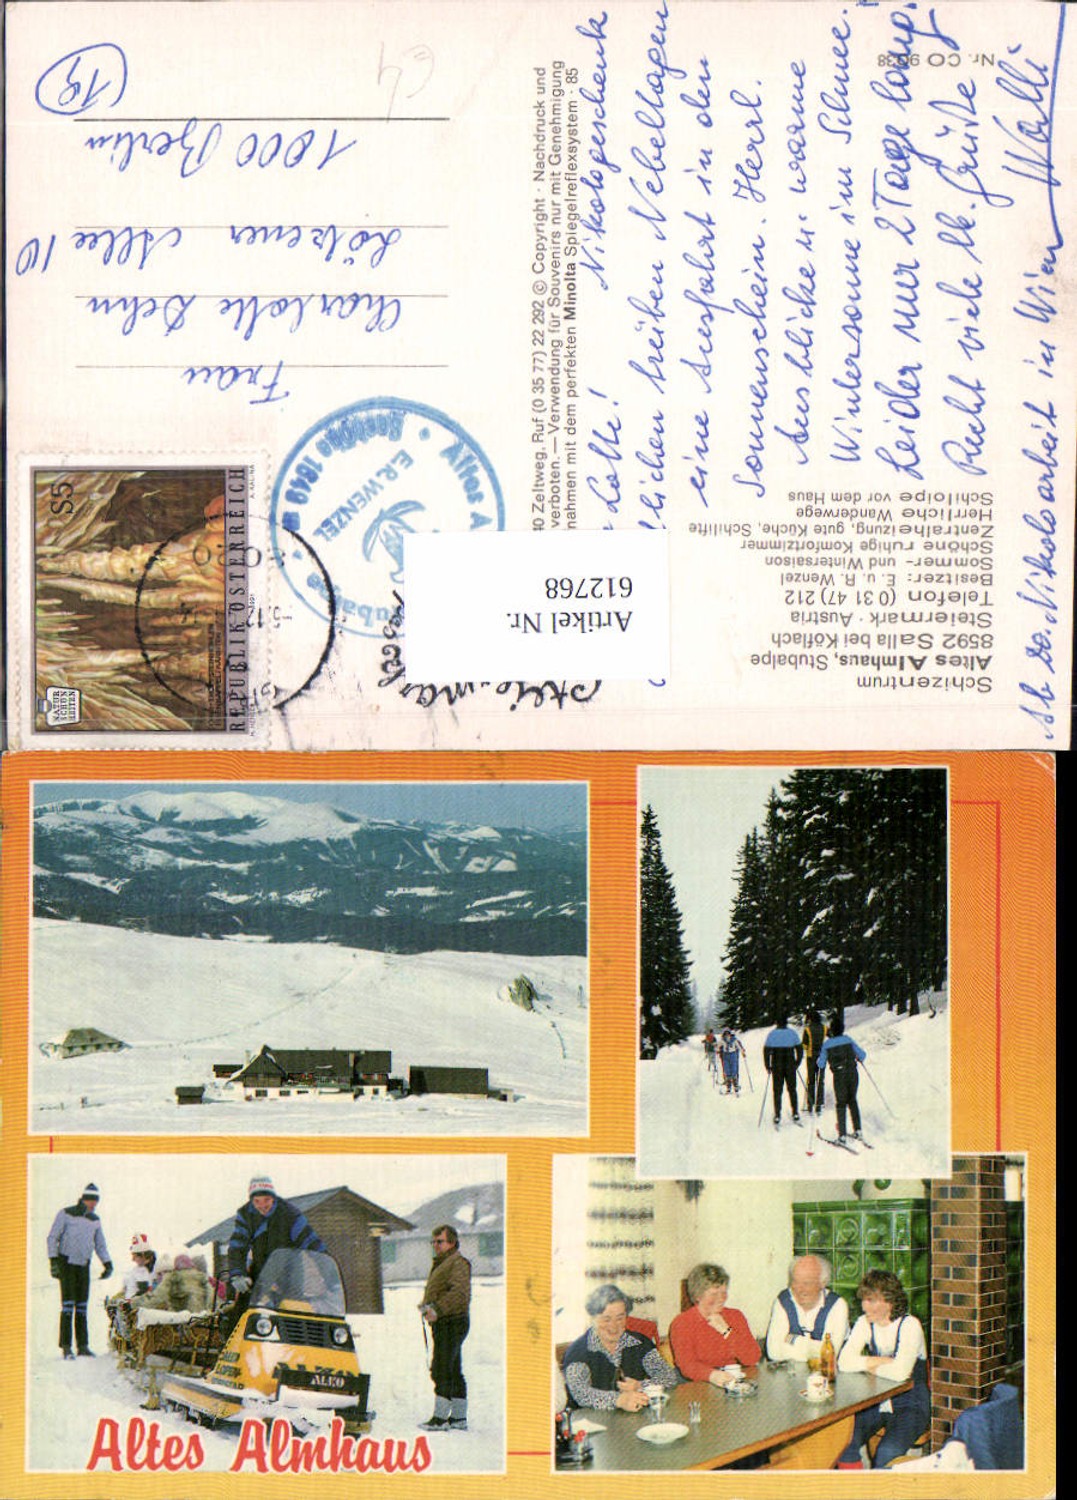 Nr. CO 9038
Schizentrum
Altes Almhaus, Stubalpe
8592 Salla bei Köflach
Steiermark · Austria
Telefon (0 31 47) 212
Besitzer: E. u. R. Wenzel
Sommer- und Wintersaison
Schöne ruhige Komfortzimmer
Zentralheizung, gute Küche, Schilifte
Herrliche Wanderwege
Schiloipe vor dem Haus
Lotte! Nikologeschenk
treiben Nebeltagen
eine Ausfahrt in den
Sonnenschein. Herrl.
Ausblicke u. warme
Wintersonne im Schnee.
Leider nur 2 Tage lang.
Recht viele lb. Grüße
Walli
Ab Do. Nikoloarbeit in Wien
40 Zeltweg, Ruf (0 35 77) 22 292 © Copyright · Nachdruck und
verboten. — Verwendung für Souvenirs nur mit Genehmigung
nahmen mit dem perfekten Minolta Spiegelreflexsystem · 85
Artikel Nr.
612768
Altes A
Seehöhe 1649 m
E.R. WENZEL
tubalpe
S5
REPUBLIK ÖSTERREICH
NATUR
SCHÖN
HEITEN
Frau
Charlotte Dehn
Lötzener Allee 10
1000 Berlin
19
ALKO
Altes Almhaus